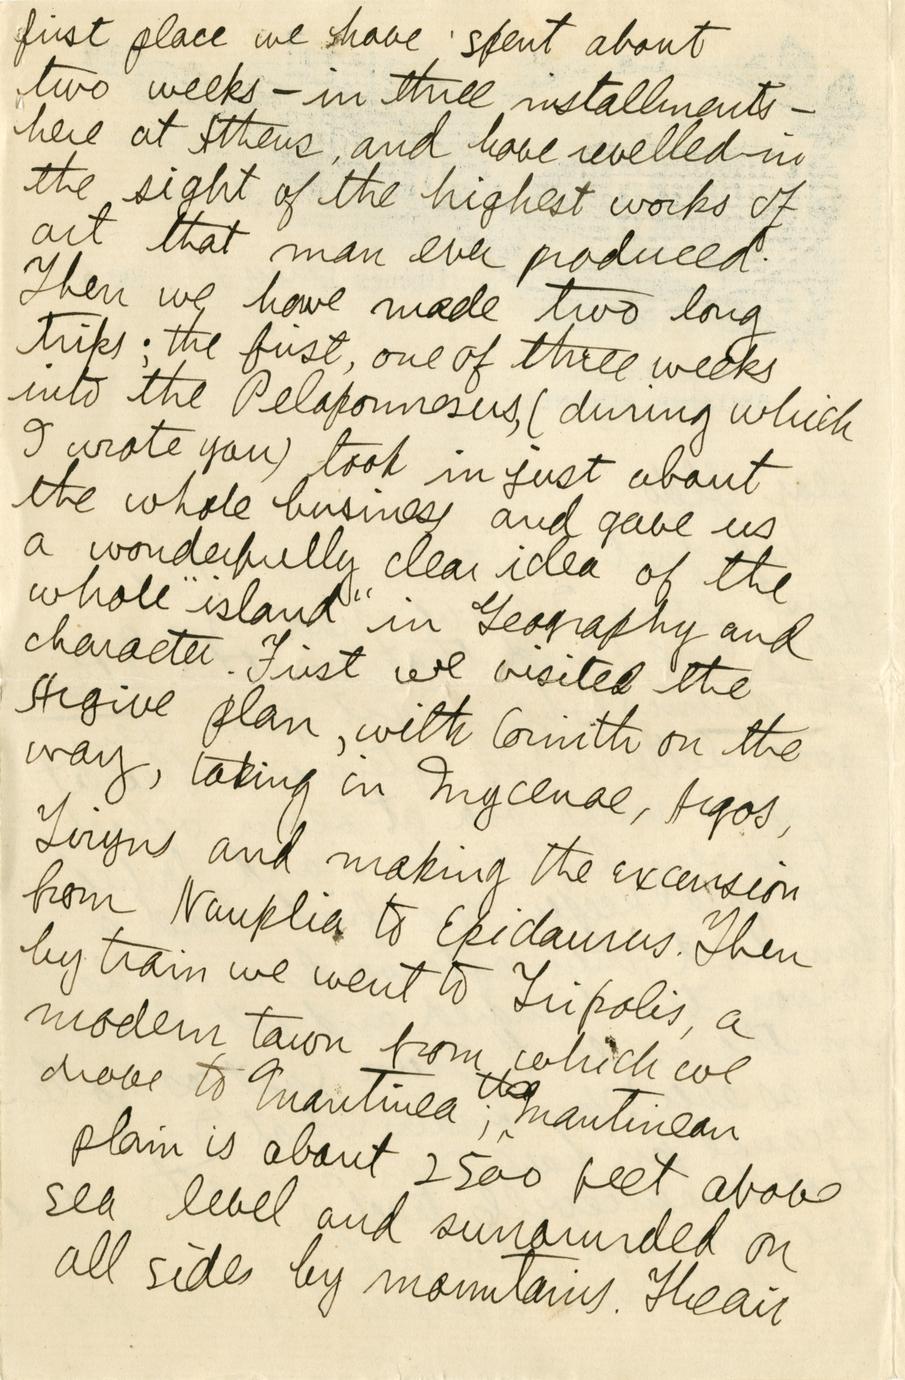 first place we have spent about
two weeks – in three installments –
here at Athens, and have revelled in
the sight of the highest works of
art that man ever produced.
Then we have made two long
trips; the first, one of three weeks
into the Peloponnesus, (during which
I wrote you) took in just about
the whole business and gave us
a wonderfully clear idea of the
whole "island" in Geography and
character. First we visited the
Argive plan, with Corinth on the
way, taking in Mycenae, Argos,
Tiryns and making the excursion
from Nauplia to Epidaurus. Then
by train we went to Tripolis, a
modern town from which we
drove to Mantinea; the Mantinean
plain is about 2500 feet above
sea level and surrounded on
all sides by mountains. The air